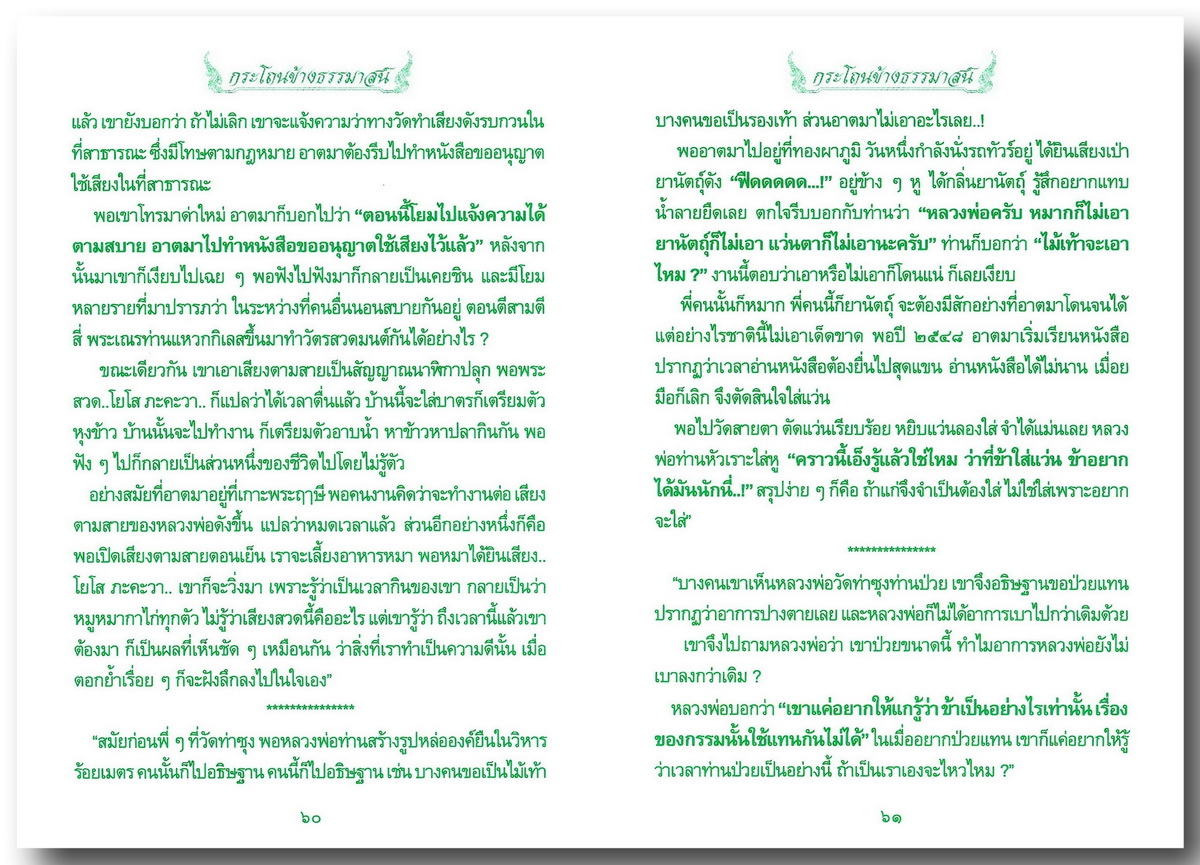 กระโถนข้างธรรมาสน์
แล้ว เขายังบอกว่า ถ้าไม่เลิก เขาจะแจ้งความว่าทางวัดทำเสียงดังรบกวนใน
ที่สาธารณะ ซึ่งมีโทษตามกฎหมาย อาตมาต้องรีบไปทำหนังสือขออนุญาต
ใช้เสียงในที่สาธารณะ
พอเขาโทรมาด่าใหม่ อาตมาก็บอกไปว่า “ตอนนี้โยมไปแจ้งความได้
ตามสบาย อาตมาไปทำหนังสือขออนุญาตใช้เสียงไว้แล้ว” หลังจาก
นั้นมาเขาก็เงียบไปเฉย ๆ พอฟังไปฟังมาก็กลายเป็นเคยชิน และมีโยม
หลายรายที่มาปรารภว่า ในระหว่างที่คนอื่นนอนสบายกันอยู่ ตอนตีสามตี
สี่ พระเณรท่านแหวกกิเลสขึ้นมาทำวัตรสวดมนต์กันได้อย่างไร ?
ขณะเดียวกัน เขาเอาเสียงตามสายเป็นสัญญาณนาฬิกาปลุก พอพระ
สวด..โยโส ภะคะวา.. ก็แปลว่าได้เวลาตื่นแล้ว บ้านนี้จะใส่บาตรก็เตรียมตัว
หุงข้าว บ้านนั้นจะไปทำงาน ก็เตรียมตัวอาบน้ำ หาข้าวหาปลากินกัน พอ
ฟัง ๆ ไปก็กลายเป็นส่วนหนึ่งของชีวิตไปโดยไม่รู้ตัว
อย่างสมัยที่อาตมาอยู่ที่เกาะพระฤๅษี พอคนงานคิดว่าจะทำงานต่อ เสียง
ตามสายของหลวงพ่อดังขึ้น แปลว่าหมดเวลาแล้ว ส่วนอีกอย่างหนึ่งก็คือ
พอเปิดเสียงตามสายตอนเย็น เราจะเลี้ยงอาหารหมา พอหมาได้ยินเสียง..
โยโส ภะคะวา.. เขาก็จะวิ่งมา เพราะรู้ว่าเป็นเวลากินของเขา กลายเป็นว่า
หมูหมากาไก่ทุกตัว ไม่รู้ว่าเสียงสวดนี้คืออะไร แต่เขารู้ว่า ถึงเวลานี้แล้วเขา
ต้องมา ก็เป็นผลที่เห็นชัด ๆ เหมือนกัน ว่าสิ่งที่เราทำเป็นความดีนั้น เมื่อ
ตอกย้ำเรื่อย ๆ ก็จะฝังลึกลงไปในใจเอง”
***************
“สมัยก่อนพี่ ๆ ที่วัดท่าซุง พอหลวงพ่อท่านสร้างรูปหล่อองค์ยืนในวิหาร
ร้อยเมตร คนนั้นก็ไปอธิษฐาน คนนี้ก็ไปอธิษฐาน เช่น บางคนขอเป็นไม้เท้า
๖๐
กระโถนข้างธรรมาสน์
บางคนขอเป็นรองเท้า ส่วนอาตมาไม่เอาอะไรเลย..!
พออาตมาไปอยู่ที่ทองผาภูมิ วันหนึ่งกำลังนั่งรถทัวร์อยู่ ได้ยินเสียงเป่า
ยานัตถุ์ดัง “ฟืดดดดด...!” อยู่ข้าง ๆ หู ได้กลิ่นยานัตถุ์ รู้สึกอยากแทบ
น้ำลายยืดเลย ตกใจรีบบอกกับท่านว่า “หลวงพ่อครับ หมากก็ไม่เอา
ยานัตถุ์ก็ไม่เอา แว่นตาก็ไม่เอานะครับ” ท่านก็บอกว่า “ไม้เท้าจะเอา
ไหม ?” งานนี้ตอบว่าเอาหรือไม่เอาก็โดนแน่ ก็เลยเงียบ
พี่คนนั้นก็หมาก พี่คนนี้ก็ยานัตถุ์ จะต้องมีสักอย่างที่อาตมาโดนจนได้
แต่อย่างไรชาตินี้ไม่เอาเด็ดขาด พอปี ๒๕๔๘ อาตมาเริ่มเรียนหนังสือ
ปรากฏว่าเวลาอ่านหนังสือต้องยื่นไปสุดแขน อ่านหนังสือได้ไม่นาน เมื่อย
มือก็เลิก จึงตัดสินใจใส่แว่น
พอไปวัดสายตา ตัดแว่นเรียบร้อย หยิบแว่นลองใส่ จำได้แม่นเลย หลวง
พ่อท่านหัวเราะใส่หู “คราวนี้เอ็งรู้แล้วใช่ไหม ว่าที่ข้าใส่แว่น ข้าอยาก
ได้มันนักนี่..!” สรุปง่าย ๆ ก็คือ ถ้าแก่จึงจำเป็นต้องใส่ ไม่ใช่ใส่เพราะอยาก
จะใส่”
***************
“บางคนเขาเห็นหลวงพ่อวัดท่าซุงท่านป่วย เขาจึงอธิษฐานขอป่วยแทน
ปรากฏว่าอาการปางตายเลย และหลวงพ่อก็ไม่ได้อาการเบาไปกว่าเดิมด้วย
เขาจึงไปถามหลวงพ่อว่า เขาป่วยขนาดนี้ ทำไมอาการหลวงพ่อยังไม่
เบาลงกว่าเดิม ?
หลวงพ่อบอกว่า “เขาแค่อยากให้แกรู้ว่า ข้าเป็นอย่างไรเท่านั้น เรื่อง
ของกรรมนั้นใช้แทนกันไม่ได้” ในเมื่ออยากป่วยแทน เขาก็แค่อยากให้รู้
ว่าเวลาท่านป่วยเป็นอย่างนี้ ถ้าเป็นเราเองจะไหวไหม ?”
๖๑